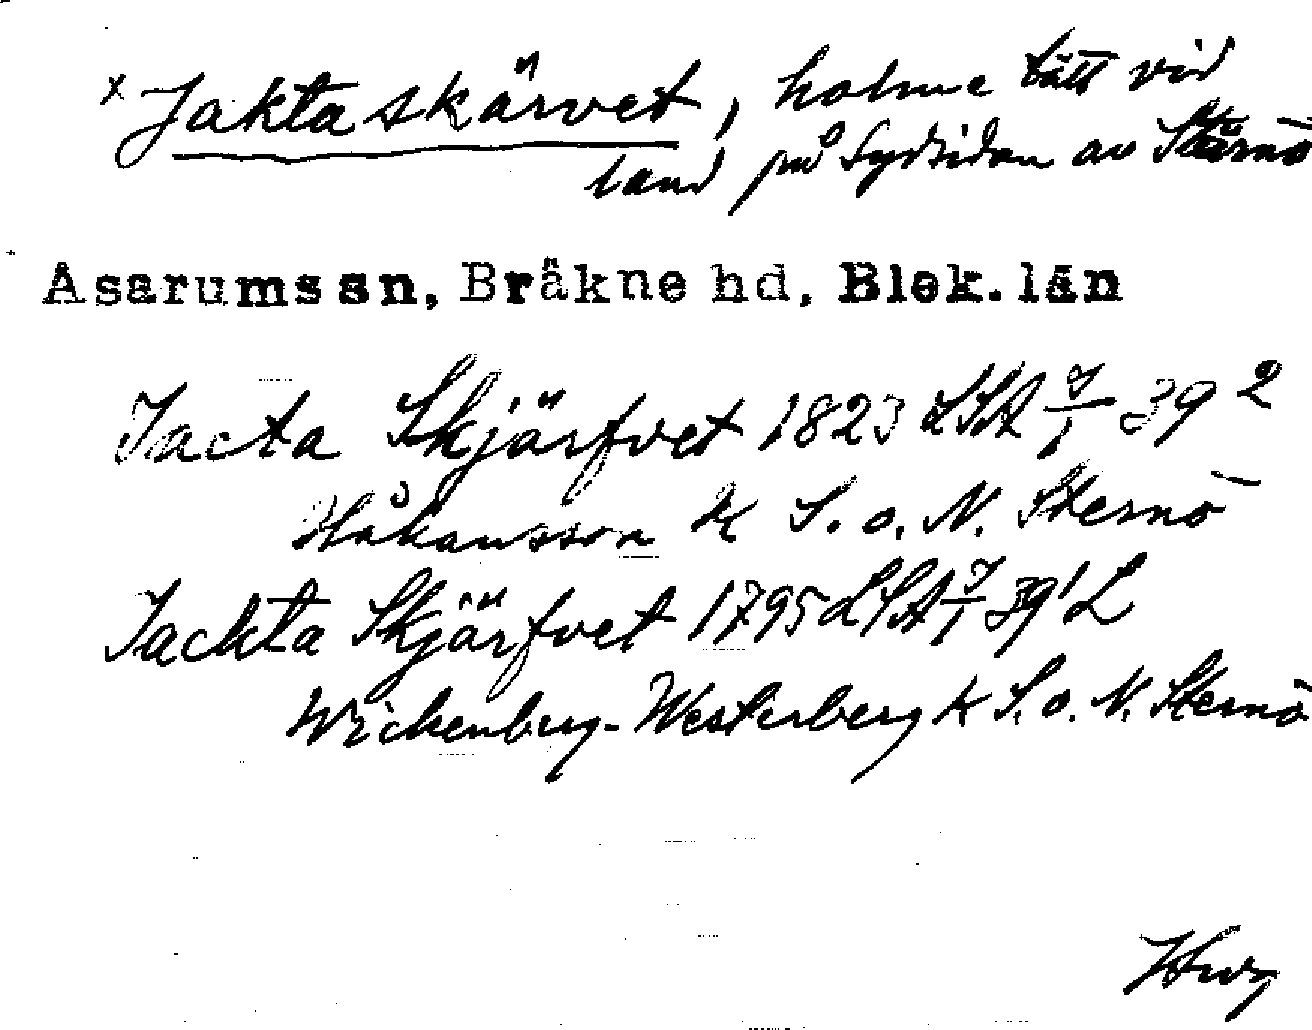 x Jaktaskärvet, holme tätt vid
land på Sydsidan av Stärnö
Asarums sn, Bräkne hd, Blek. län
Jacta Skjärfvet 1823 LSA J/1 39 2
Håkansson k S. o. N. Sternö
Jackta Skjärfvet 1795 LSA J/1 39 1 L
Wickenberg-Westerberg k S. o. N. Sternö